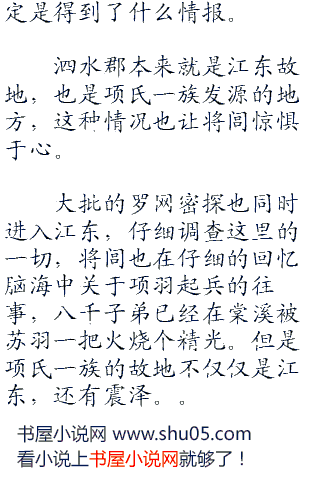 定是得到了什么情报。
泗水郡本来就是江东故
地，也是项氏一族发源的地
方，这种情况也让将闾惊惧
于心。
大批的罗网密探也同时
进入江东，仔细调查这里的
一切，将闾也在仔细的回忆
脑海中关于项羽起兵的往
事，八千子弟已经在棠溪被
苏羽一把火烧个精光。但是
项氏一族的故地不仅仅是江
东，还有震泽。。
书屋小说网 www.shu05.com
看小说上书屋小说网就够了！